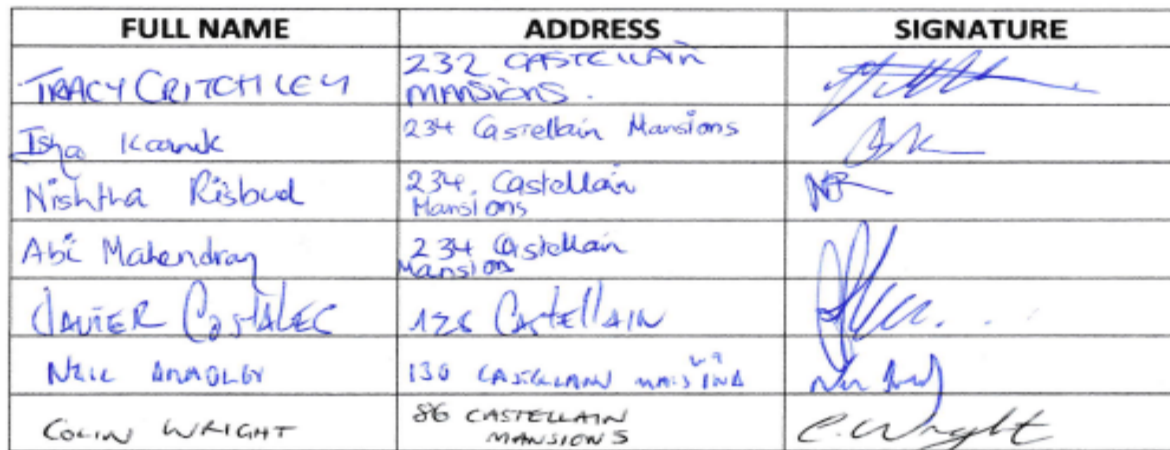 FULL NAME ADDRESS SIGNATURE
TRACY CRITCHLEY 232 CASTELLAIN
MANSIONS.
Isha Karnik 234 Castellain Mansions
Nishtha Risbud 234. Castellain
Mansions NR
Abi Mahendran 234 Castellain
Mansions
JAVIER COSTALES 126 CASTELLAIN
NEIL 130 CASTELLAIN
COLIN WRIGHT 86 CASTELLAIN
MANSIONS C. Wright